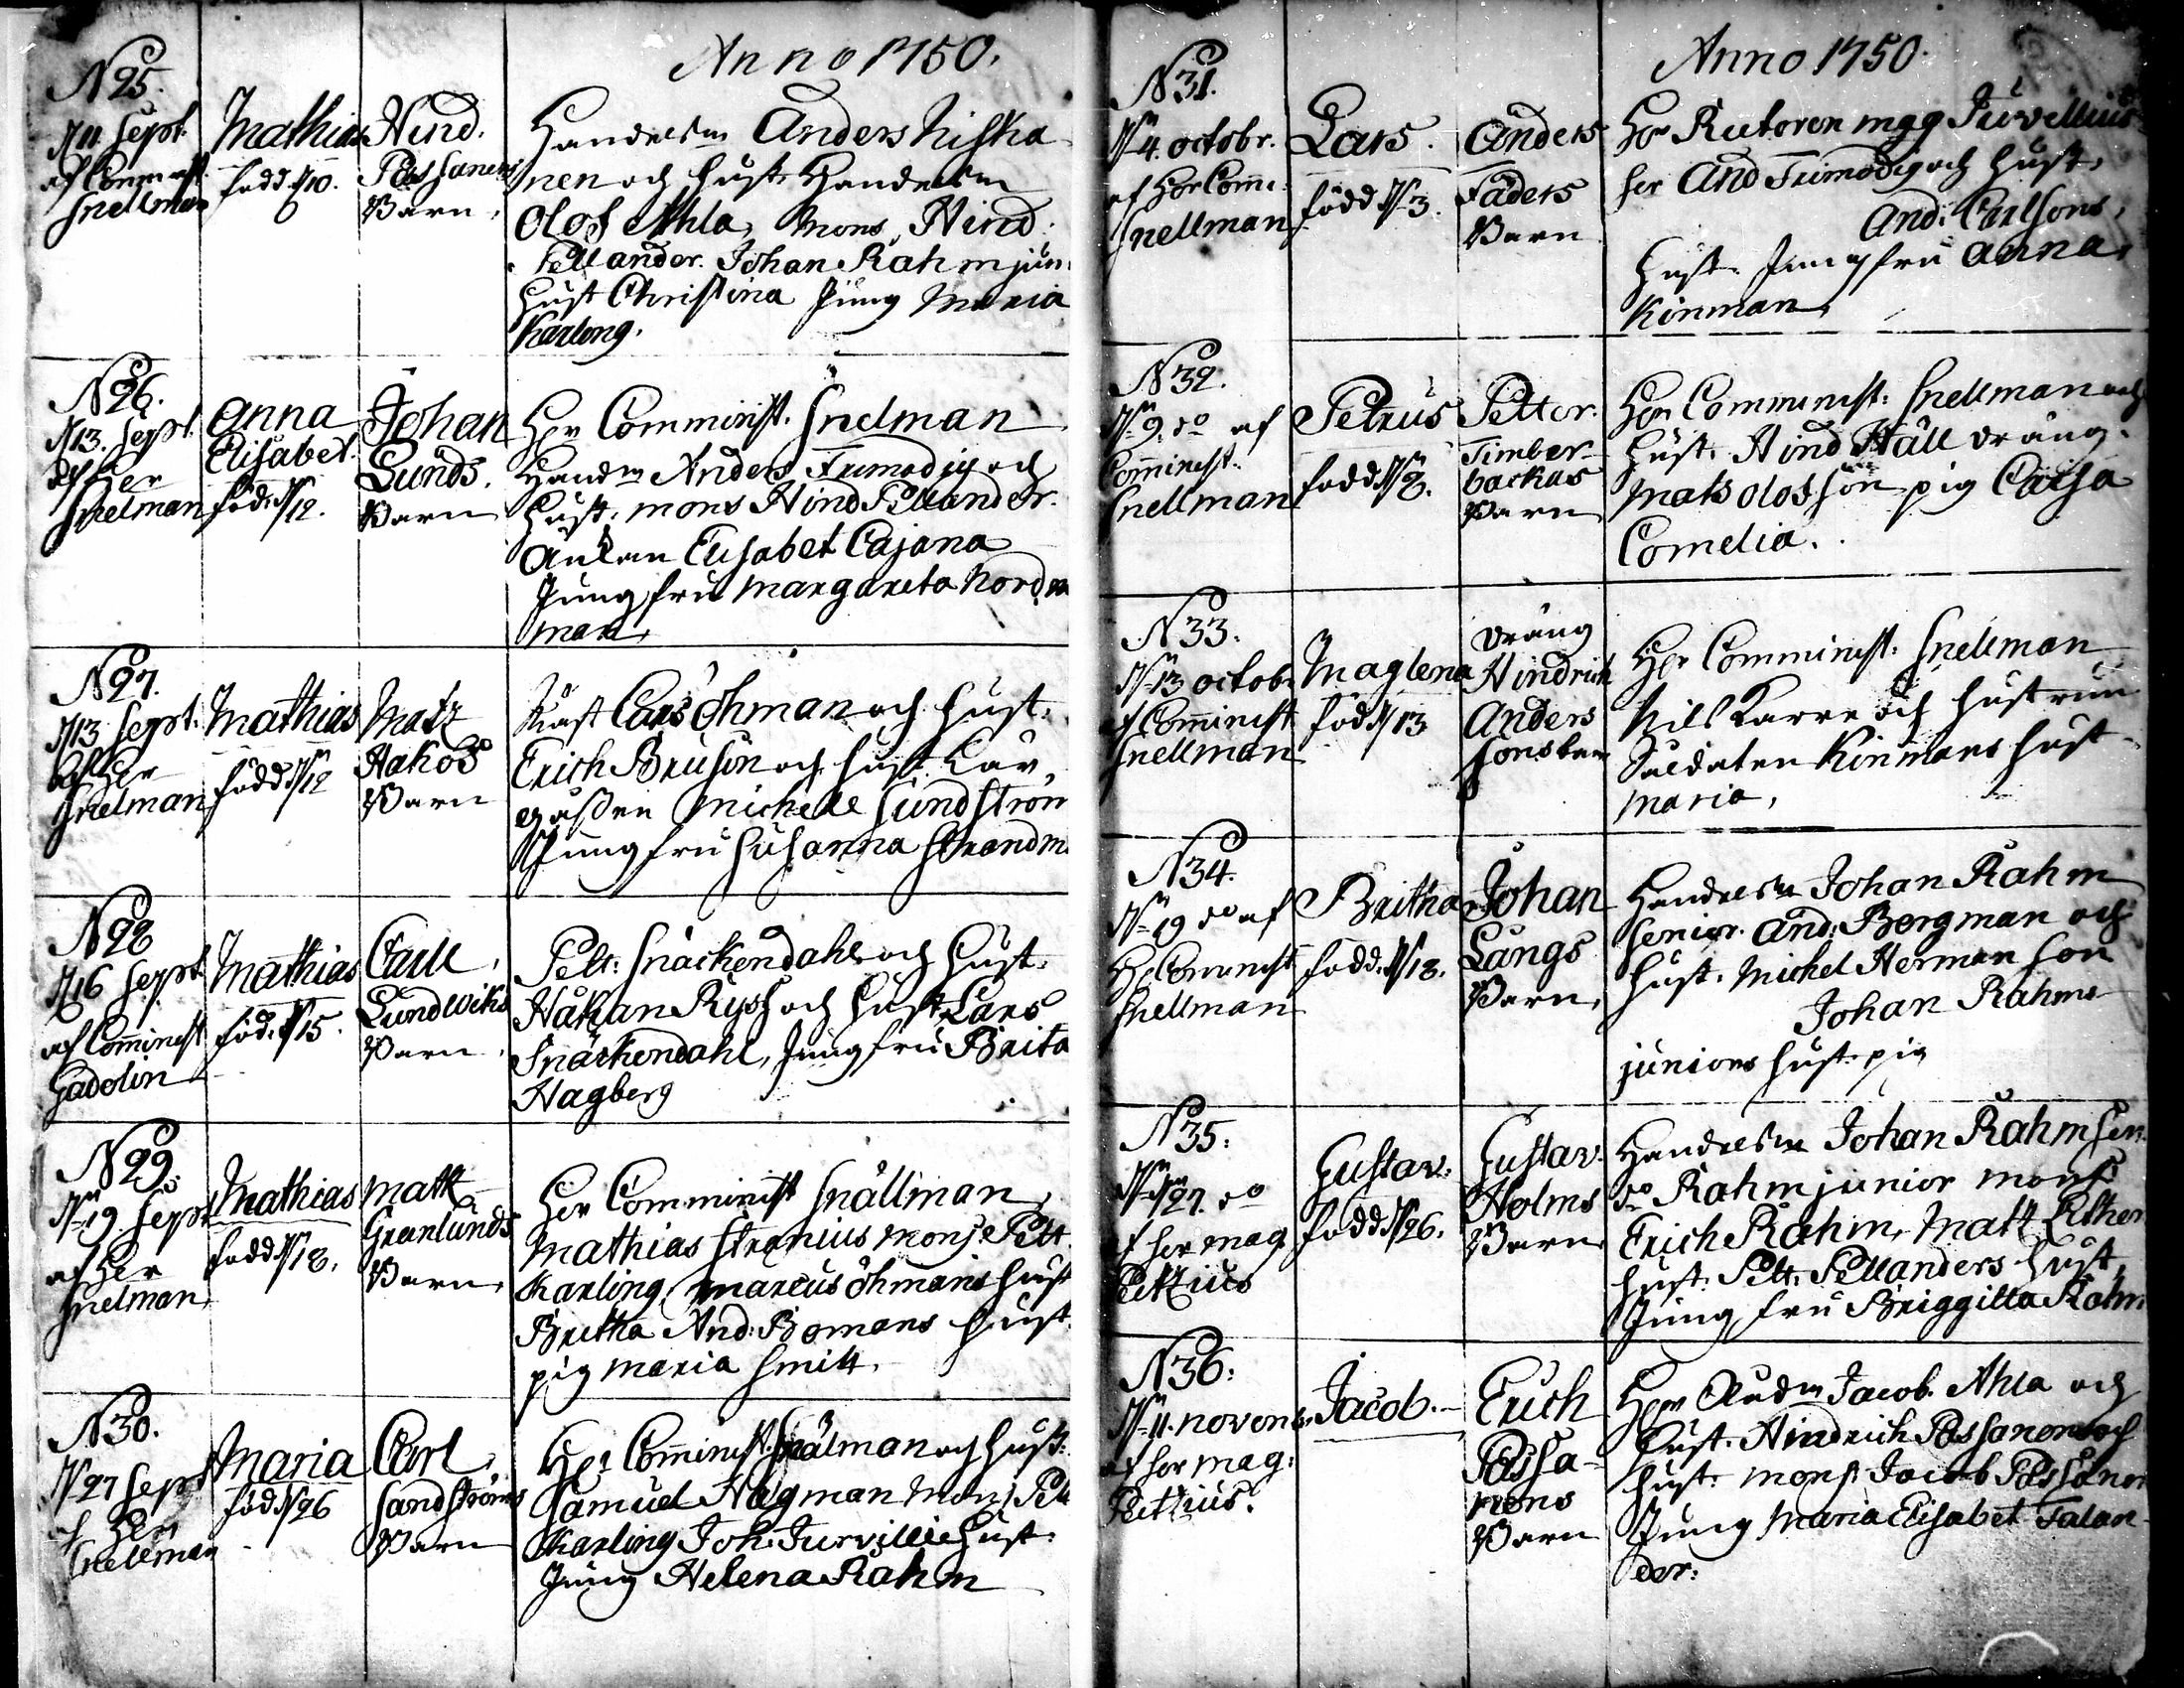 Anno 1750.
N 25.
11 Sept.
af Comminist.
Snellman
Mathias
född 10.
Hind.
Possanens
Barn.
Handelsm Anders Niska
nen och hust. Handelsm
Olof Ahla, Mons. Hind.
Pellander. Johan Rahm jun.
hust Christina Jung Maria
Karling.
N 26.
13. Sept.
af Her
Snelman
Anna
Elisabet.
föd. 12.
Johan
Lunds.
Barn
Her Comminist. Snelman
Handm Anders Frimodig och
hust. mons Hind Pellander.
Enkan Elisabet Cajana
Jungfru Margareta Nord
man,
N 27.
13 Sept.
af Her
Snelman
Mathias
född 12
Matz
Hakos
Barn
Lars öhman och hust.
Erich Bruson och hust
Michell Sundström
Jungfru Susanna Strandm
N 28
16 Sept
af Cominist
Gadolin
Mathias
föd. 15.
Carll
Lundwiks
Barn.
Pett: Snäckendahl och hust.
Håkan Rysz och hust Lars
Snäckendahl, Jungfru Brita
Hagberg
N 29.
19. Sept
af Her
Snelman
Mathias
född 18.
Matts
Granlunds
Barn,
Her Comminist Snällman,
Mathias Stranius Mons. Pett
Karling, Marcus öhmans hust
Britha And. Bomans hust.
pig Maria Smitt.
N 30.
27 Sept
af Her
Snellman
Maria
föd. 26
Carl
Sandströms
Barn
Her Cominist. Snälman och hust:
Samuel Hagman Mons Pett
Karling Joh. Jurvillii hust.
Jung Helena Rahm
Anno 1750.
N 31.
4. octobr.
af Her Com.
Snellman
Lars.
född 3.
Anders
Fäders
Barn
Her Rectoren mag Juvellius
her And Frimodig och hust,
And. Carlsons,
hust. Jungfru Anna
Kinman,
N 32.
9. do af
Cominist.
Snellman
Petrus
född 8.
Petter.
Timber-
backas
Barn
Her Comminist: Snellman och
hust. Hind Häll dräng.
Mats olosson pig Caisa
Comelia.
N 33.
13 octob.
af Cominist
Snellman
Maglena
född 13
dräng
Hindrich
Anders
sons barn
Her Comminist: Snellman
Nils Karre och hustrun
Soldaten Kinmans hust
Maria,
N 34.
19 do af
H. Cominist
Snellman
Britha
född. 18.
Johan
Långs
Barn,
Handelsm Johan Rahm
Senior. And. Bergman och
hust. Michel Herman son
Johan Rahms
juniors hust. pig
N 35.
27. do
af her mag
Pettius
Gustav.
född 26.
Gustav.
Holms
Barn
Handelsm Johan Rahm Sen.
do Rahm junior mons
Erich Rahm, Matt
hust. Pett: Pellanders hust,
Jungfru Briggitta Rahm
N 36.
11. novemb.
af her mag:
Pettius.
Jacob.
Erich
Possa-
nens
Barn
Her Jacob Ahla och
hust. Hindrich Possanen och
hust. mons Jacob Possanen
Jung Maria Elisabet Falan-
der.